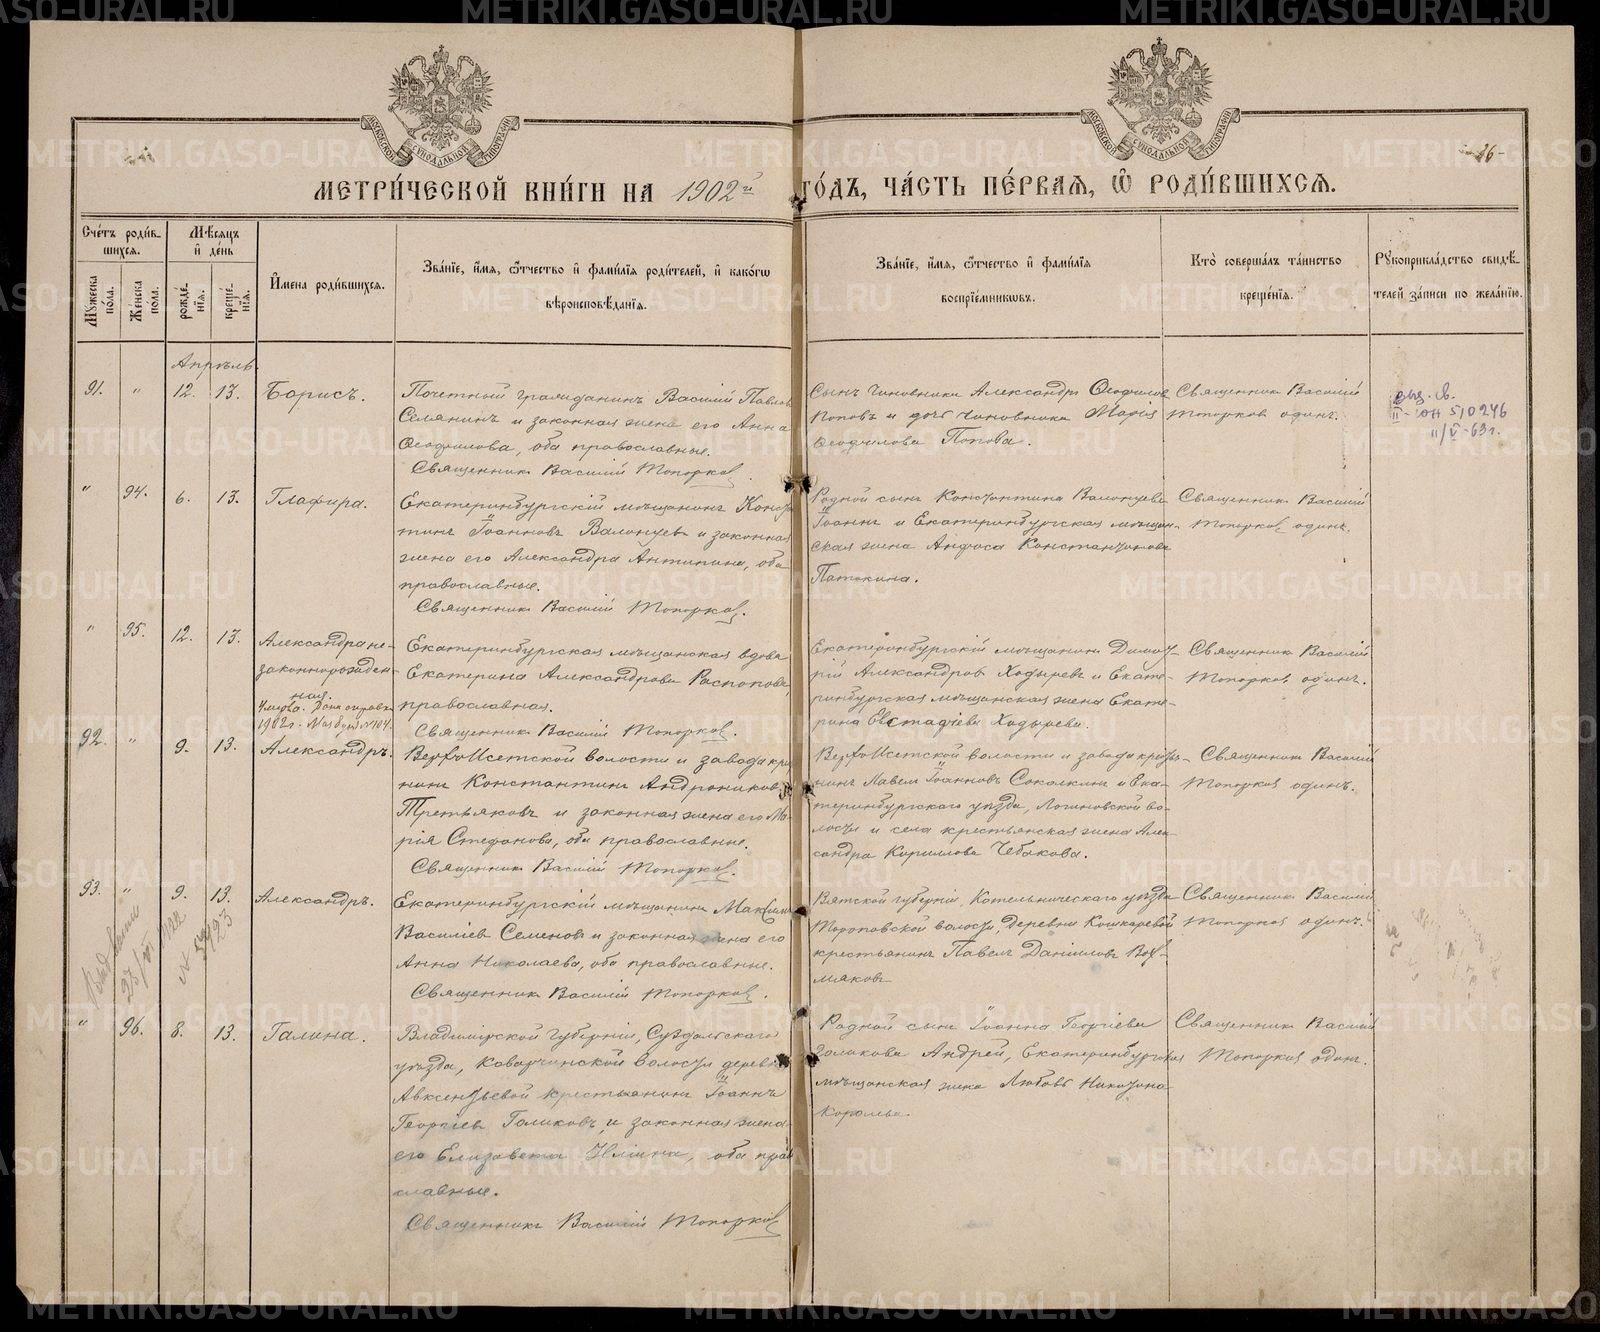 МЕТРИ́ЧЕСКОЙ КНИ́ГИ НА 1902й ГО́ДЪ, ЧА́СТЬ ПЕ́РВАЯ, Ѿ РОДИ́ВШИХСЯ.
26
Сче́тъ роди́в-
шихся.
Мꙋжеска по́ла.
Же́нска пола.
Мѣ́сяцъ
и҆ де́нь
рожде́нїѧ.
креще́нїѧ.
И҆мена роди́вшихся.
Зва́нїе, и҆́мя, ѻ҆́тчество и҆ фами́лїя роди́телей, и҆ како́гѡ
вѣроисповѣ́данїя.
Зва́нїе, и҆́мя, ѻ҆́тчество и҆ фами́лїя
воспрїе́мниковъ.
Кто̀ соверша́лъ та́инство
креще́нїя.
Рꙋкоприкла́дство свидѣ́-
телей за́писи по жела́нїю.
Апрѣль.
91. " 12. 13. Борисъ.
Почетный гражданинъ Василій Павлов
Селянинъ и законная жена его Анна
Ѳеофилова, оба православные.
Священник Василій Топорков.
Сынъ чиновника Александръ Ѳеофилов
Поповъ и дочь чиновника Марія
Ѳеофилова Попова.
Священник Василій
Топорков один.
выд. св.
II-ЮН 510246
11/V-63г.
" 94. 6. 13. Глафира.
Екатеринбургскій мѣщанинъ Конста
тинъ Іоанновъ Валонцев и законная
жена его Александра Антипина, оба
православные.
Священник Василій Топорков.
Родной сынъ Константина Валонцева
Іоаннъ и Екатеринбургская мѣщан-
ская жена Анфиса Константинова
Священник Василій
Топорков одинъ.
" 95. 12. 13. Александра не-
законнорожден-
ная.
1902г.
Екатеринбургская мѣщанская вдова
Екатерина Александрова Распопова,
православная.
Священник Василій Топорков.
Екатеринбургскій мѣщанин Димит-
рій Александров Ходырев и Екате-
ринбургская мѣщанская жена Екате-
рина Евстафіева Ходырева.
Священник Василій
Топорков один.
92. " 9. 13. Александръ.
ВерхоИсетской волости и завода крес
нин Константин Андроников
Третьяковъ и законная жена его Ма-
рія Стефанова, оба православные.
Священник Василій Топорков.
ВерхоИсетской волости и завода крестья-
нинъ Павел Іоанновъ Соколкин и Ека-
теринбургскаго уѣзда, Логиновской во-
лости и села крестьянская жена Алек-
сандра Кирилова Чебакова.
Священник Василій
Топорков одинъ.
93. " 9. 13. Александръ.
23/VI
Екатеринбургскій мѣщанин Максим
Василіев Семенов и законная жена его
Анна Николаева, оба православные.
Священник Василій Топорков.
Вятской губерніи, Котельническаго уѣзда
Тороповской волости, деревни Кошкаревой
крестьянинъ Павелъ Даніиловъ Вох-
мяков
Священник Василій
Топорков одинъ.
" 96. 8. 13. Галина.
Владимірской губерніи, Суздальскаго
уѣзда, Коварчинской волости деревн
Авксентьевой крестьянинъ Іоаннъ
Георгіев Голиковъ и законная жена
его Елизавета Ильина, оба право
славные.
Священникъ Василій Топорков
Родной сынъ Іоанна Георгіева
Голикова Андрей, Екатеринбургская
мѣщанская жена Любовь Никитина
Королева.
Священник Василій
Топорков один.
METRIKI.GASO-URAL.RU